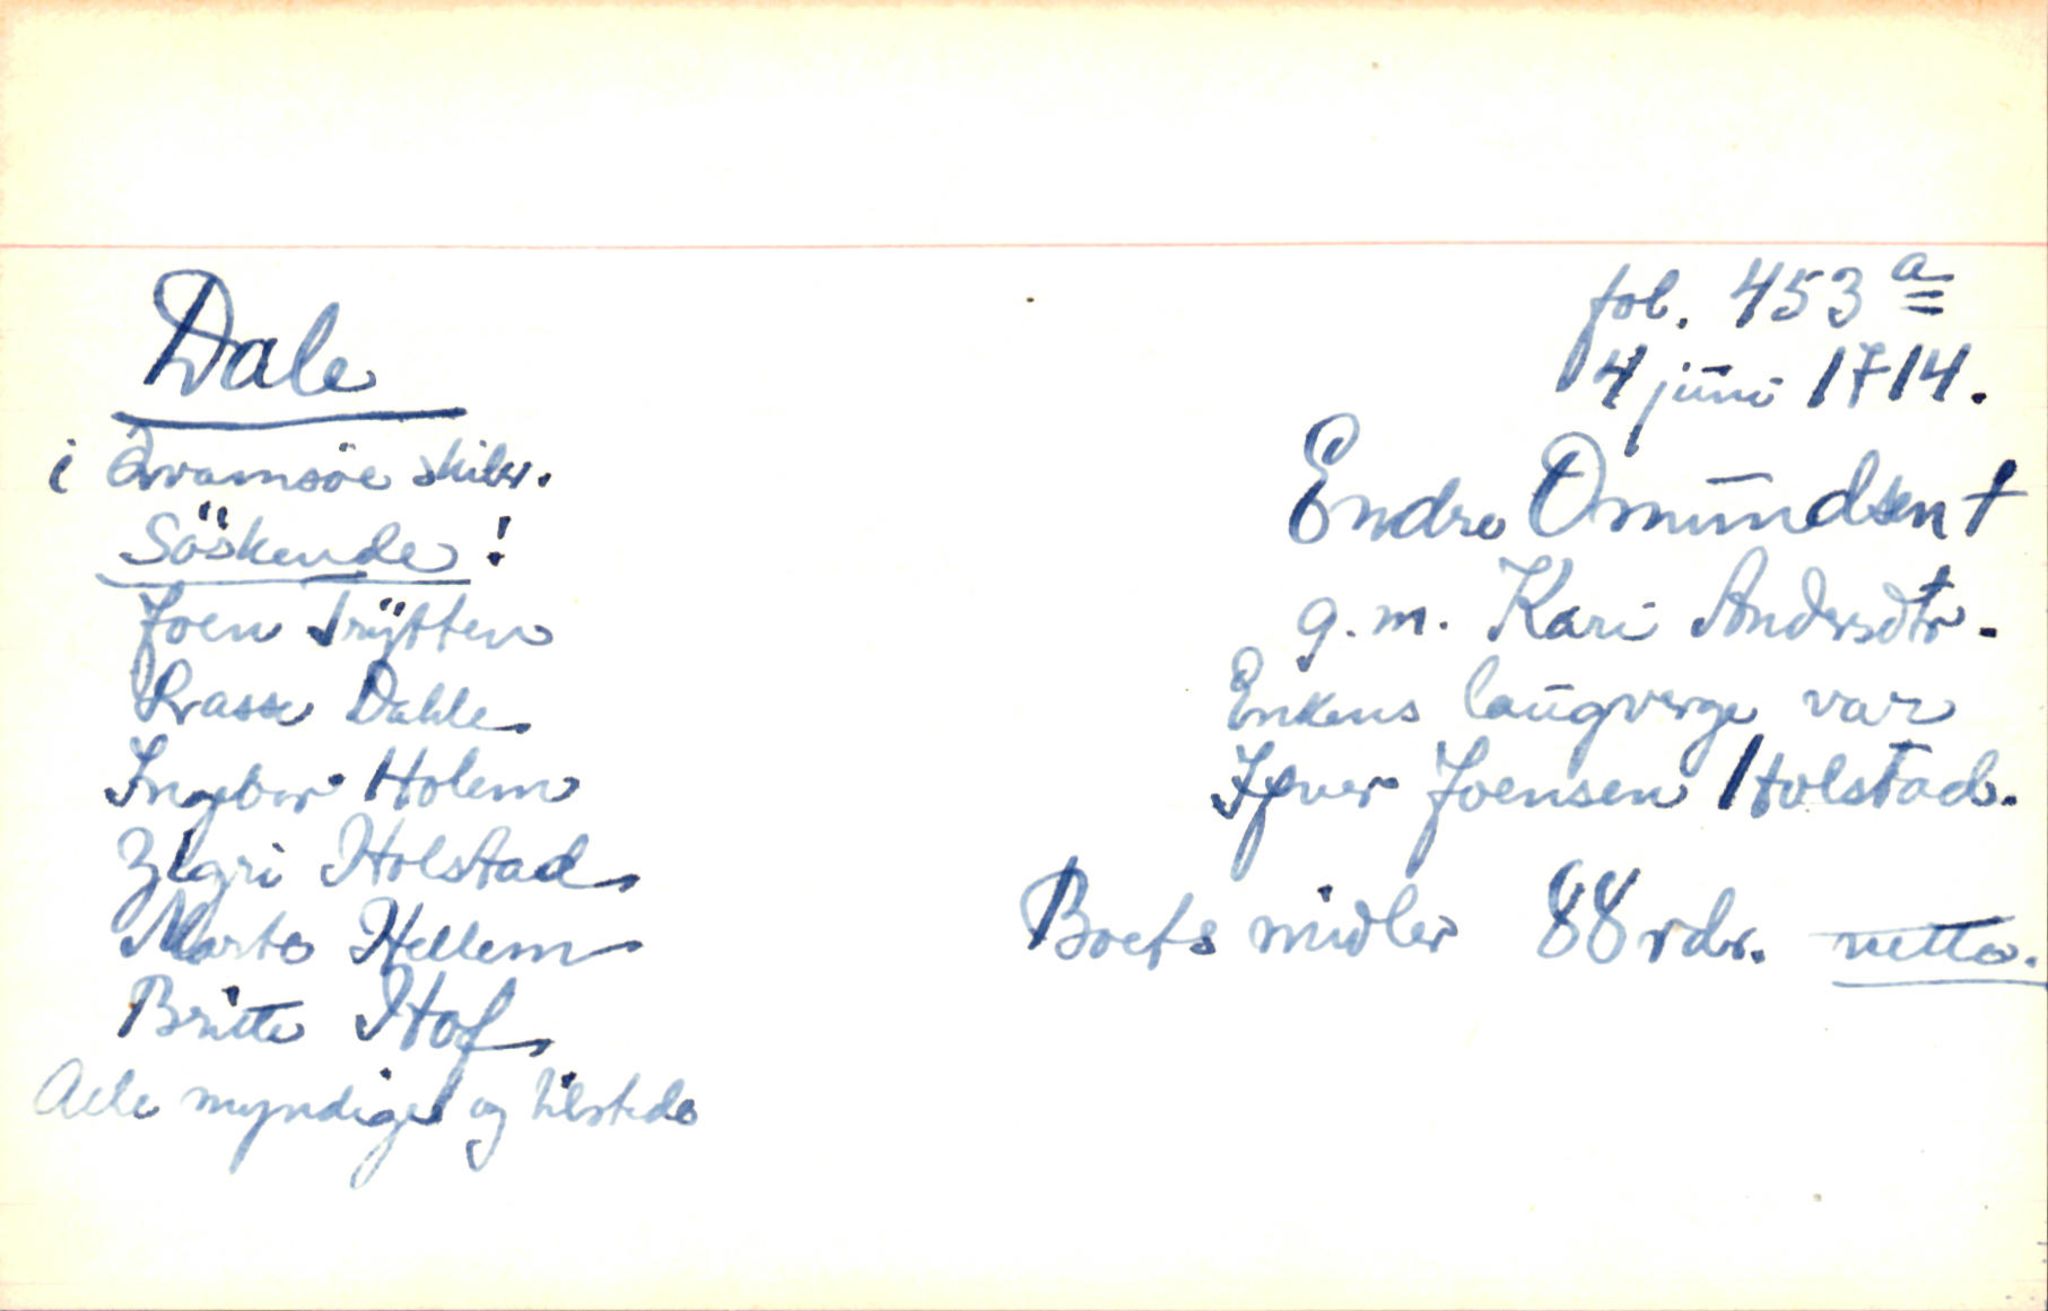 Dale
i Qvamsöe skibr.
Söskende!
Joen Trÿtten
Lasse Dahle
Ingebor Holem
Zigri Holstad
Marte Hellem
Britte Hof
Alle myndige og tilstede
fol. 453 a
4 juni 1714.
Endre Omundsen †
g. m. Kari Andersdtr.
Enkens laugverge var
Ifver Joensen Holstad.
Boets midler 88 rdr. netto.